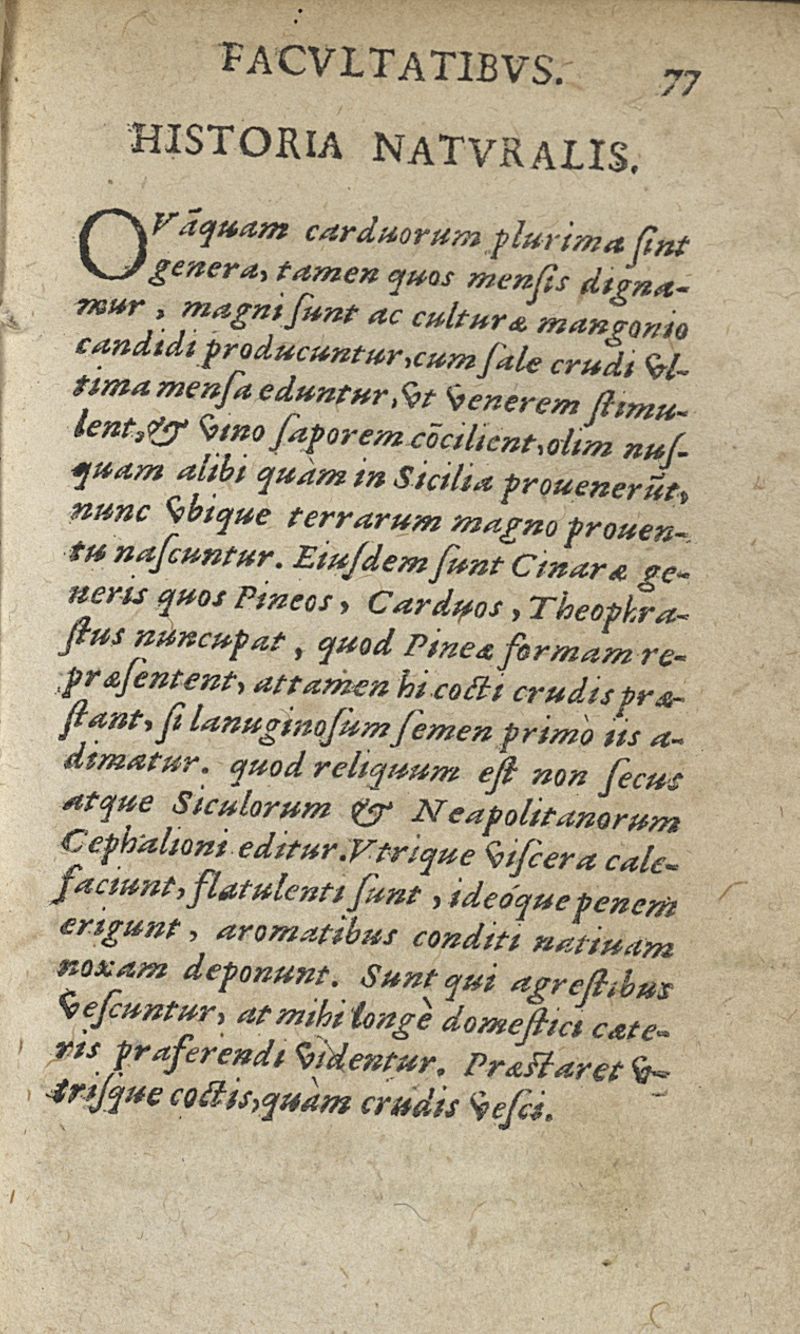 FACVLTATIBVS. 77
HISTORIA NATVRALIS.
QVãquam carduorum plurima ſint
genera, tamen quos menſis digna-
mur, magni ſunt ac culturæ mangonio
candidi producuntur, cum ſale crudi vl-
tima menſa eduntur, vt venerem ſtimu-
lent, & vino ſaporem cõcilient, olim nuſ-
quam alibi quàm in Sicilia prouenerũt,
nunc vbique terrarum magno prouen-
tu naſcuntur. Eiuſdem ſunt Cinaræ ge-
neris quos Pineos, Carduos, Theophra-
ſtus nuncupat, quod Pineæ formam re-
præſentent, attamen hi cocti crudis præ-
ſtant, ſi lanuginoſum ſemen primò iis a-
dimatur. quod reliquum eſt non ſecus
atque Siculorum & Neapolitanorum
Cephalioni editur. Vtrique viſcera cale-
faciunt, flatulenti ſunt, ideóque penem
erigunt, aromatibus conditi natiuam
noxam deponunt. Sunt qui agreſtibus
veſcuntur, at mihi longè domeſtici cæte-
ris præferendi videntur. Præſtaret v-
triſque coctis, quàm crudis veſci.